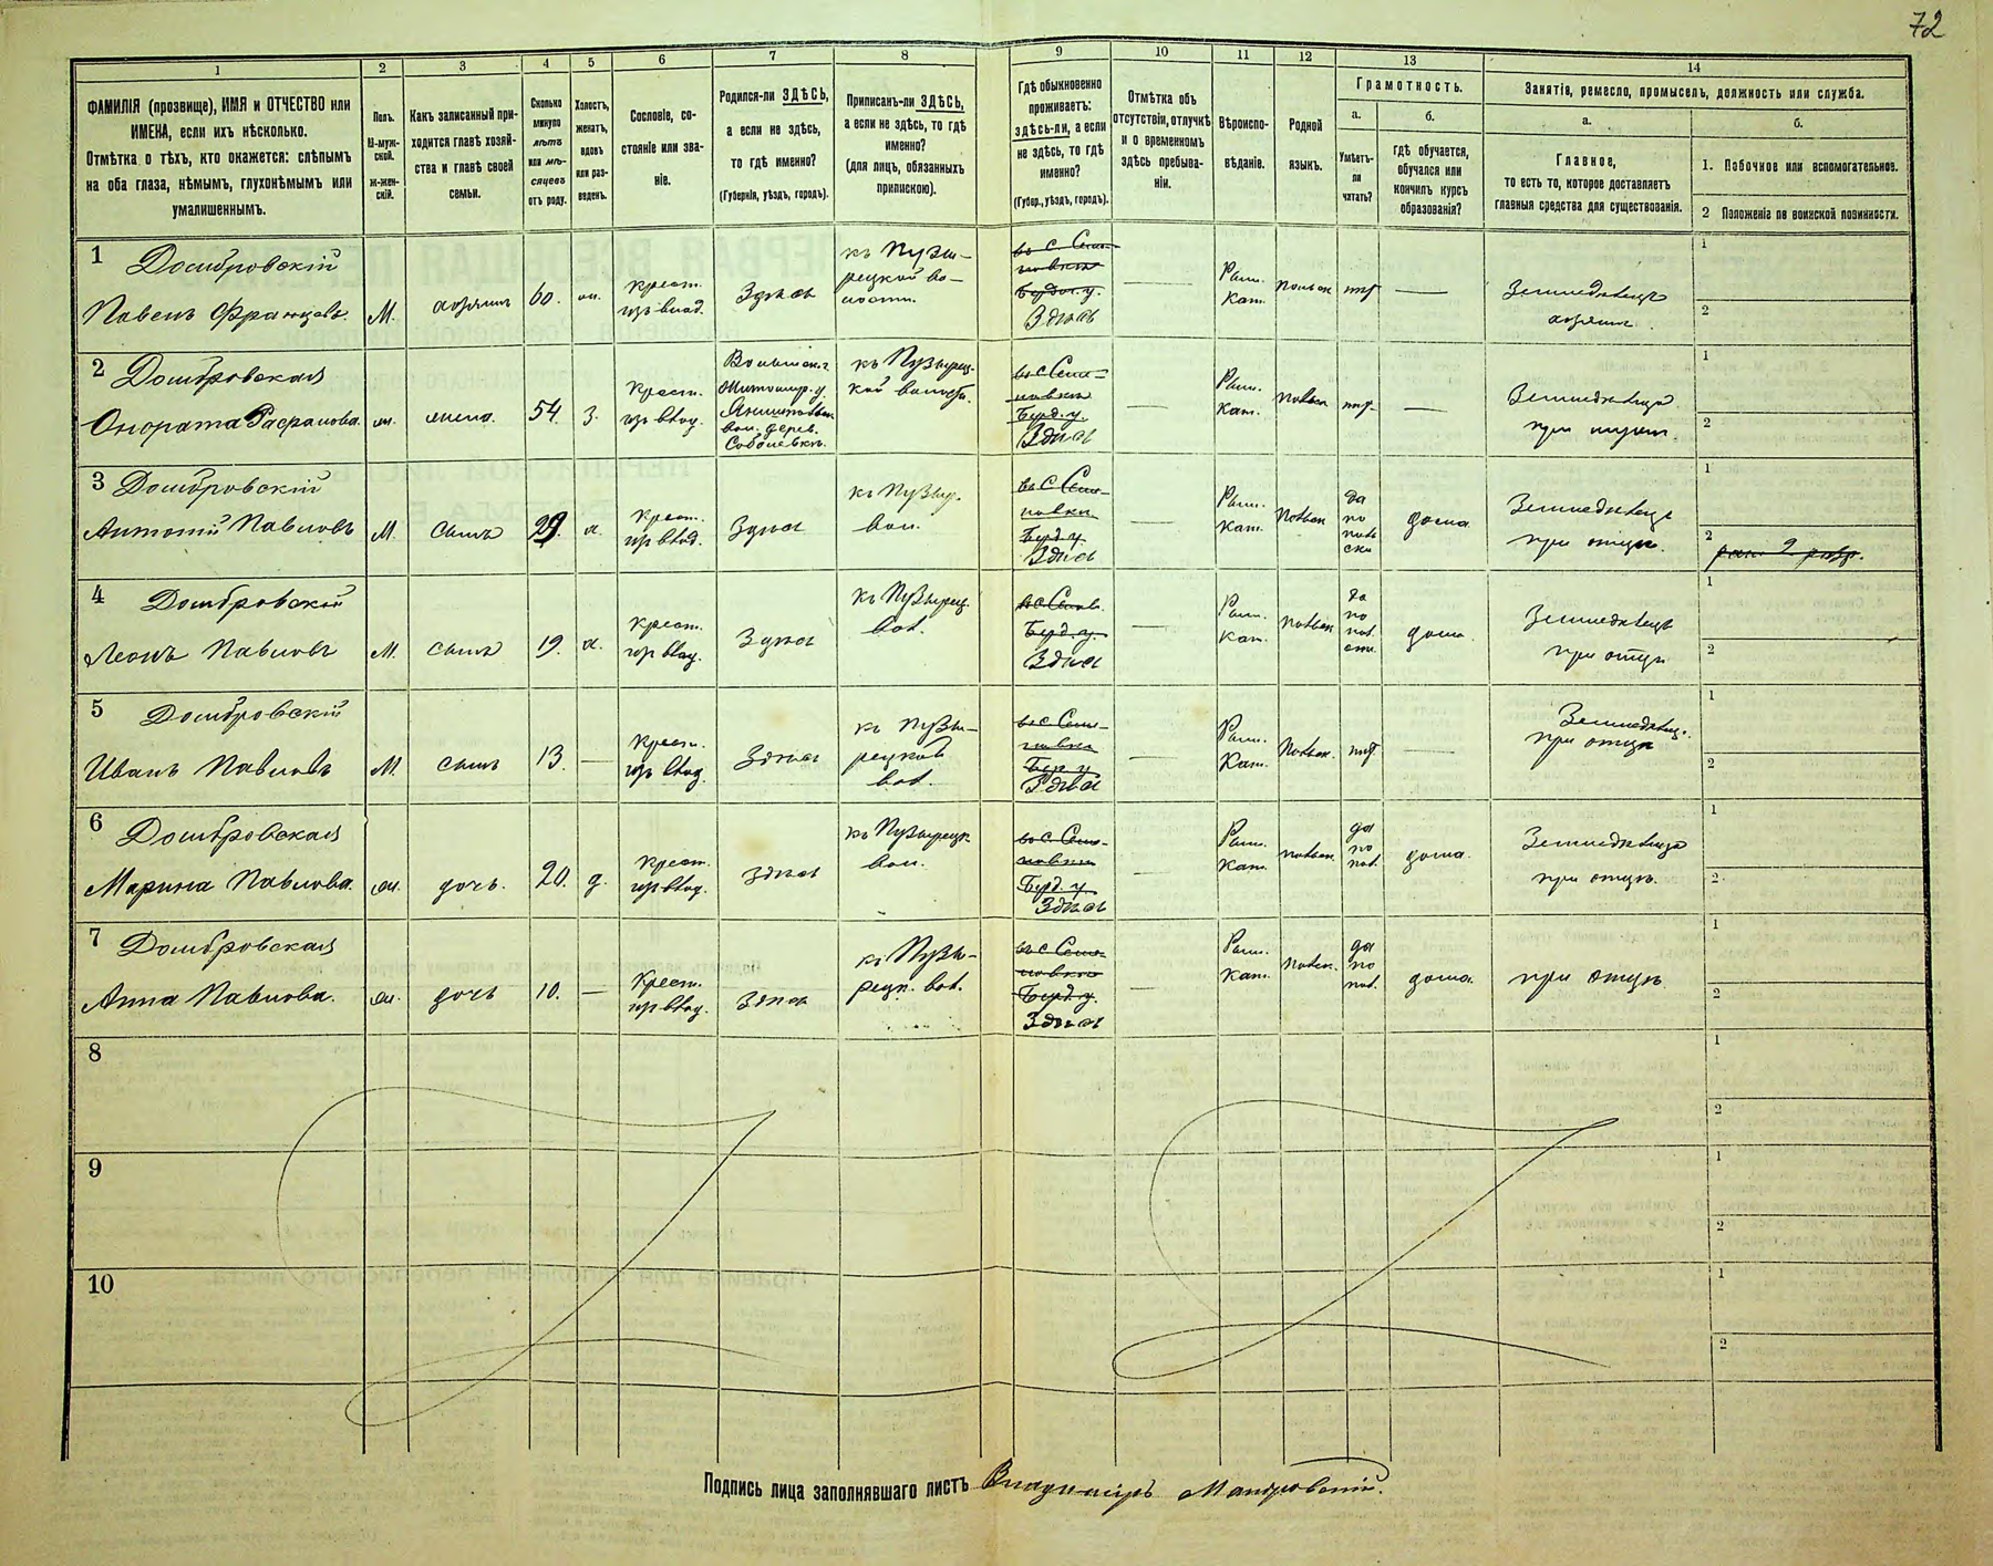 72
1
2
3
4
5
6
7
8
9
10
11
12
13
14
ФАМИЛІЯ (прозвище), ИМЯ и ОТЧЕСТВО или
ИМЕНА, если ихъ нѣсколько.
Отмѣтка о тѣхъ, кто окажется: слѣпымъ
на оба глаза, нѣмымъ, глухонѣмымъ или
умалишеннымъ.
Полъ.
М-муж-
ской.
Ж-жен-
скій.
Какъ записанный при-
ходится главѣ хозяй-
ства и главѣ своей
семьи.
Сколько
минуло
лѣтъ
или мѣ-
сяцевъ
отъ роду.
Холостъ,
женатъ,
вдовъ
или раз-
веденъ.
Сословіе, со-
стояніе или зва-
ніе.
Родился-ли ЗДѢСЬ,
а если не здѣсь,
то гдѣ именно?
(Губернія, уѣздъ, городъ).
Приписанъ-ли ЗДѢСЬ,
а если не здѣсь, то гдѣ
именно?
(для лицъ, обязанныхъ
припискою).
Гдѣ обыкновенно
проживаетъ:
здѣсь-ли, а если
не здѣсь, то гдѣ
именно?
(Губер., уѣздъ, городъ).
Отмѣтка объ
отсутствіи, отлучкѣ
и о временномъ
здѣсь пребыва-
ніи.
Вѣроиспо-
вѣданіе.
Родной
языкъ.
Грамотность.
а.
Умѣетъ-
ли
читать?
б.
гдѣ обучается,
обучался или
кончилъ курсъ
образованія?
Занятіе, ремесло, промыселъ, должность или служба.
а.
Главное,
то есть то, которое доставляетъ
главныя средства для существованія.
б.
1. Побочное или вспомогательное.
2 Положеніе по воинской повинности.
1 Домбровскій
Павелъ Францовъ.
М.
хозяинъ
60.
ж.
крест.
изъ влад.
Здѣсь
къ Пузы-
рецкой во-
лости.
въ с. Сем-
Здѣсь
—
Рим.
Кат.
польск
нѣт
—
Земледѣлецъ
хозяинъ.
1
2
2 Домбровская
Онората
ж.
жена.
54.
З.
Крест.
изъ влад.
Волынск.
Житомир. у.
вол. дерев.
къ Пузырец-
кой волости.
Берд. у.
Здѣсь
—
Рим.
Кат.
польск
нѣт.
—
Земледѣлица
при мужѣ.
1
2
3 Домбровскій
Антоній Павловъ
М.
сынъ
х.
Крест.
изъ влад.
Здѣсь
къ Пузыр.
вол.
Берд. у.
Здѣсь
—
Рим.
Кат.
польск
да
по
поль
ски
дома
Земледѣлец
при отцѣ.
1
2 рат. 2 разр.
4 Домбровскій
Леонъ Павловъ
М.
сынъ
19.
х.
крест.
изъ влад.
Здѣсь
къ Пузырец.
вол.
Берд. у.
Здѣсь
—
Рим.
Кат.
польск
да
по
пол.
ски.
дома.
Земледѣлецъ
при отцѣ
1
2
5 Домбровскій
Иванъ Павловъ
М.
сынъ
13.
—
Крест.
изъ влад.
Здѣсь
къ Пузы-
рецкой
вол.
Бер. у.
Здѣсь
—
Рим.
Кат.
польск.
нѣт.
—
Земледѣлец.
при отцѣ
1
2
6 Домбровская
Марина Павлова.
ж.
дочь.
20.
д.
Крест.
изъ влад.
Здѣсь
къ Пузырецк.
вол.
Берд. у.
Здѣсь
—
Рим.
Кат.
польск
да
по
пол.
дома.
Земледѣлица
при отцѣ.
1
2
7 Домбровская
Анна Павлова.
ж.
дочь
10.
—
Крест.
изъ влад.
Здѣсь
къ Пузы-
рецк. вол.
Берд. у.
Здѣсь
—
Рим.
Кат.
польск.
да
по
пол.
дома.
при отцѣ
1
2
8
1
2
9
1
2
10
1
2
Подпись лица заполнявшаго листъ Владимиръ